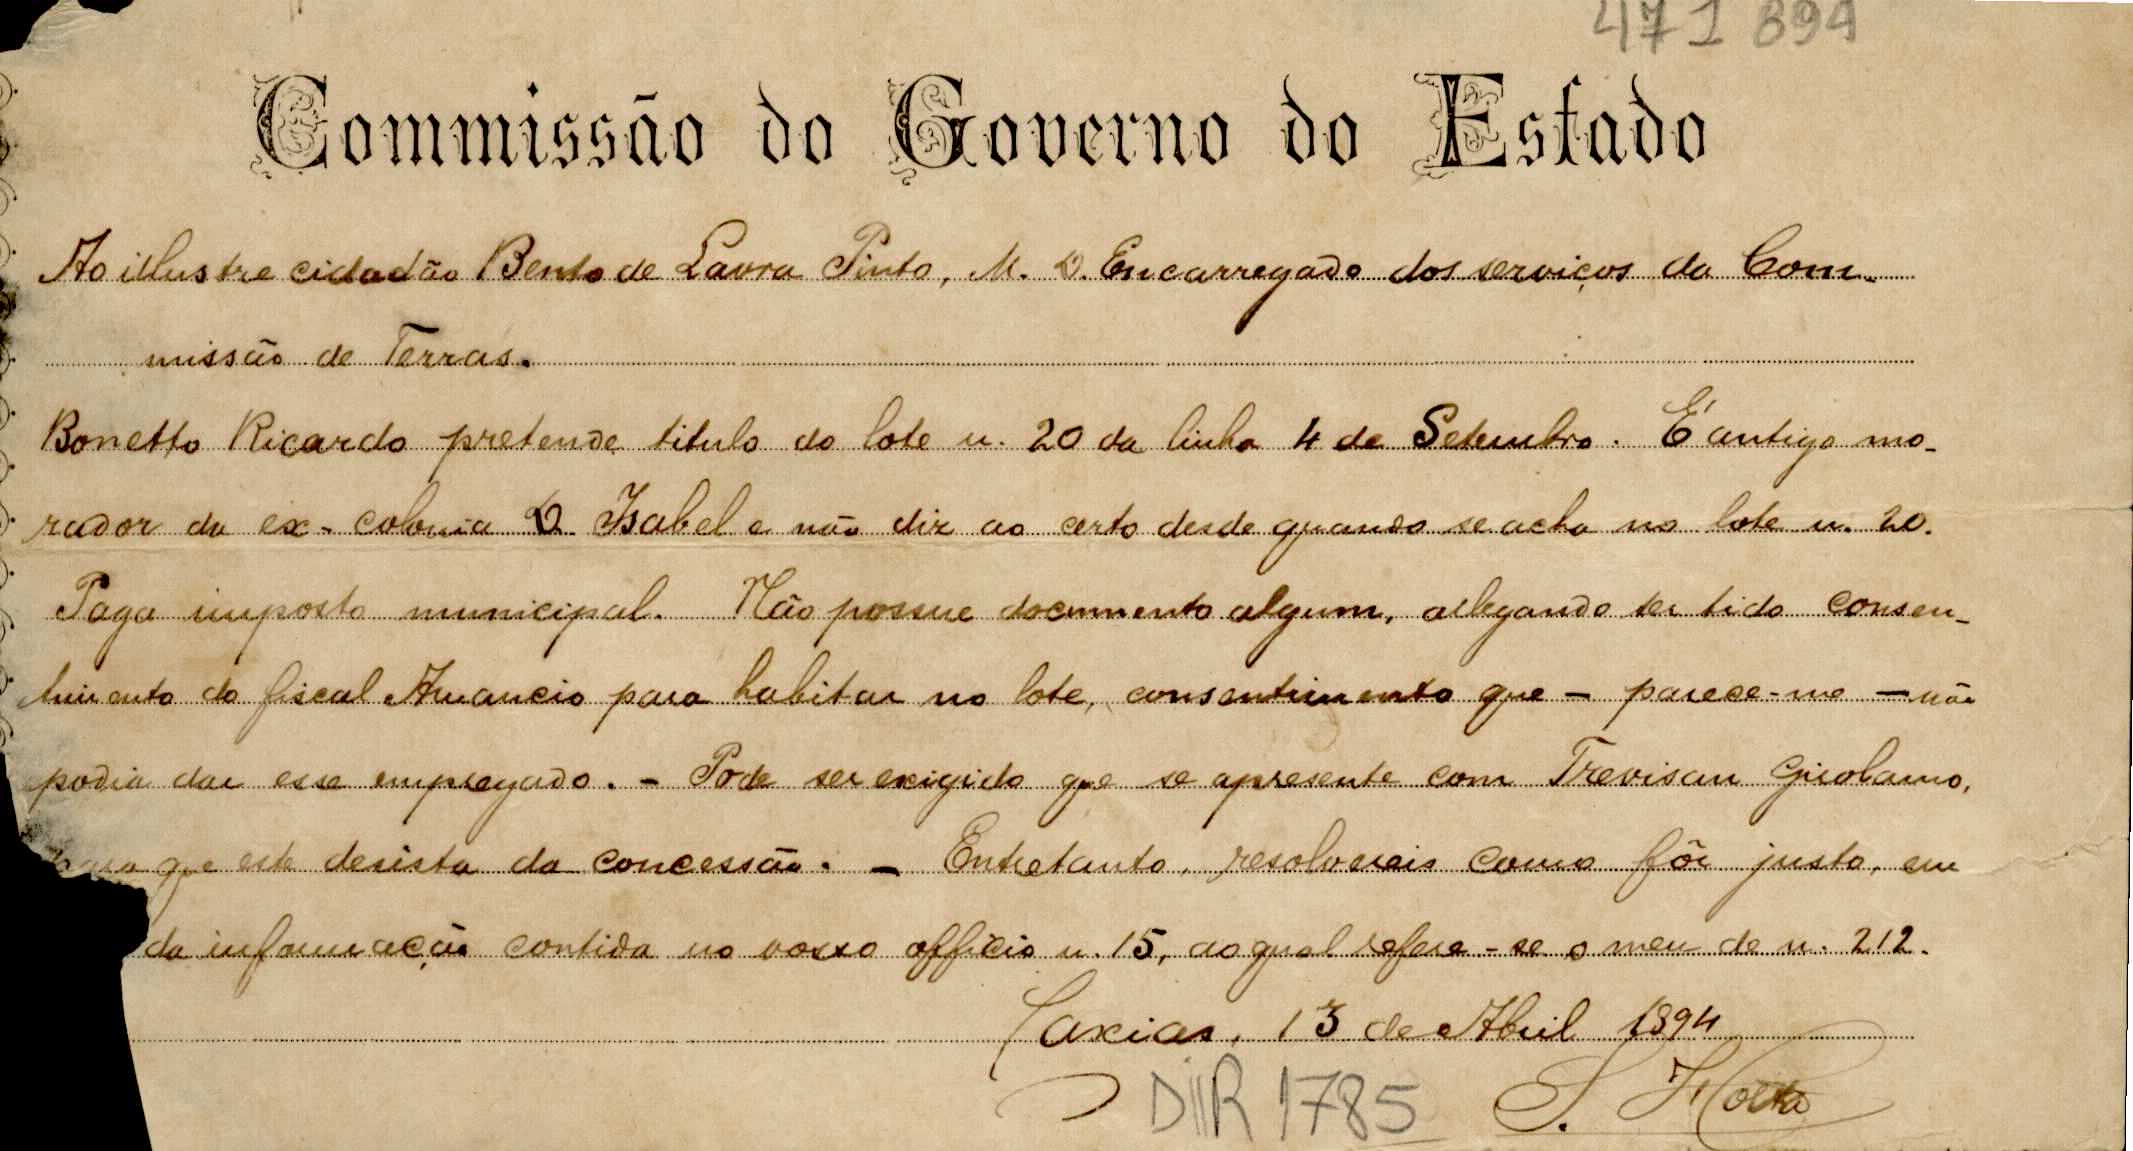 471 894
Commissão do Governo do Estado
Ao illustre cidadão Bento de Lavra Pinto, M. D. Encarregado dos serviços da Com-
missão de Terras.
Bonetto Ricardo pretende titulo do lote n. 20 da linha 4 de Setembro. É antigo mo-
rador da ex-colonia D. Isabel e não diz ao certo desde quando se acha no lote n. 20.
Paga imposto municipal. Não possue documento algum, allegando ter tido consen-
timento do fiscal Amancio para habitar no lote, consentimento que – parece-me – não
podia dar esse empregado. – Pode ser exigido que se apresente com Trevisan Girolamo,
para que este desista da concessão. – Entretanto, resolvereis como fôr justo, em
da informação contida no vosso officio n. 15, ao qual refere-se o meu de n. 212.
Caxias, 13 de Abril 1894
DIIR 1785